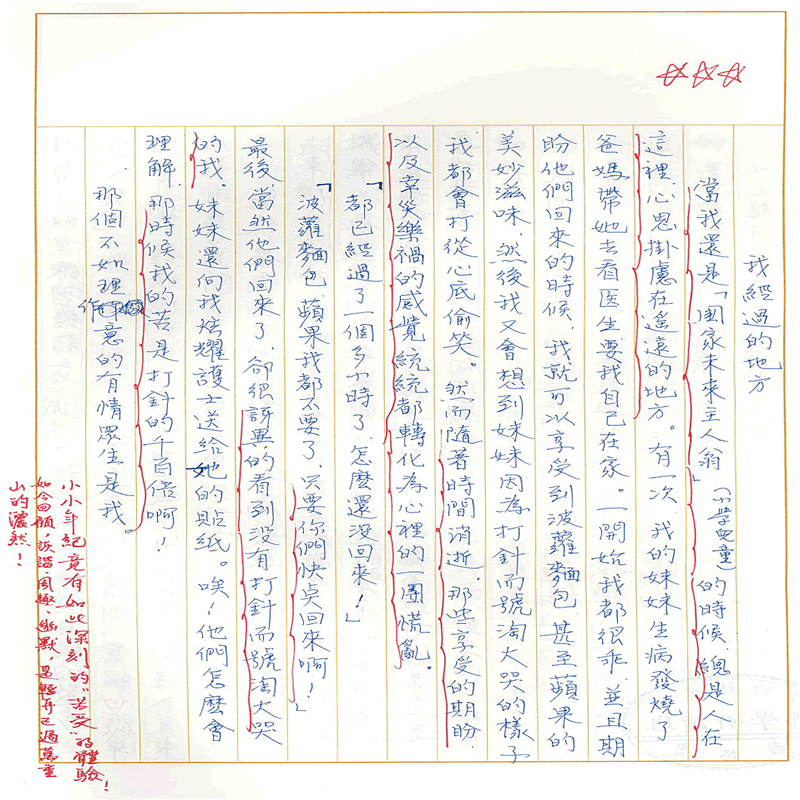 我經過的地方
當我還是「國家未來主人翁」(小學兒童)的時候 總是人在
這裡 心思掛慮在遙遠的地方。有一次 我的妹妹生病發燒了
爸媽帶她去看医生要我自己在家。一開始我都很乖 並且期
盼他們回來的時候 我就可以享受到波蘿麵包 甚至蘋果的
美妙滋味 然後我又會想到妹妹因為打針而號淘大哭的樣子
我都會打從心底偷笑。然而隨著時間消逝 那些享受的期盼
以及幸災樂禍的感覺 統統都轉化為心裡的一團慌亂。
「都已經過了一個多小時了 怎麼還沒回來!」
「波蘿麵包 蘋果我都不要了 只要你們快点回來啊!」
最後 當然他們回來了 卻很訝異的看到沒有打針而號淘大哭
的我。妹妹還向我炫耀護士送給她的貼紙。唉!他們怎麼會
理解 那時候我的苦是打針的千百倍啊!
那個不如理作意的有情眾生是我。
小小年紀竟有如此深刻的"苦受"的體驗!
如今回顧,詼諧、風趣、幽默,是輕舟已過萬重
山的灑然!